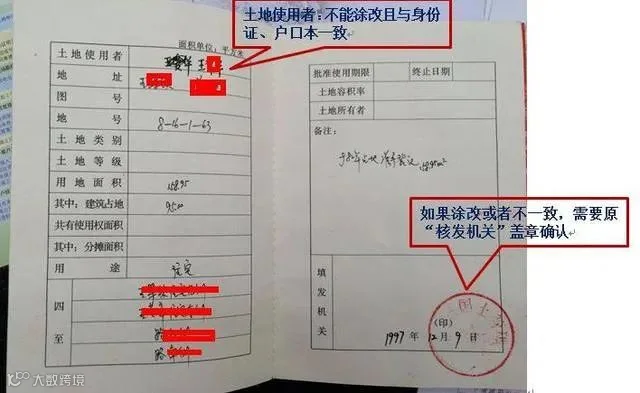 土地使用者：不能涂改且与身份
证、户口本一致
面积单位：平方米
土地使用者
地 址
图 号
地 号 8-16-1-63
土地类别
土地等级
用地面积 158.95
其中：建筑占地 95.00
共有使用权面积
其中：分摊面积
用 途 住宅
四
至
批准使用期限 终止日期
土地容积率
土地所有者
备注：
158.95m²
如果涂改或者不一致，需要原
“核发机关”盖章确认
填发机关
（印）
1997年12月9日
大数跨境